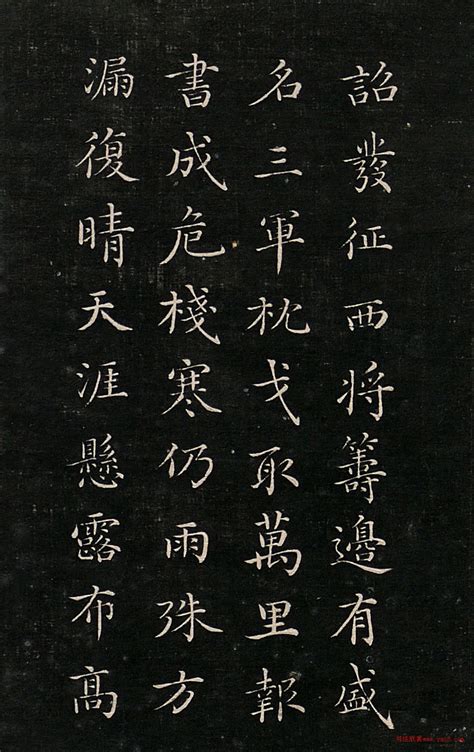 詔發征西將籌邊有盛
名三軍枕戈取萬里報
書成危棧寒仍雨殊方
漏復晴天涯懸露布高